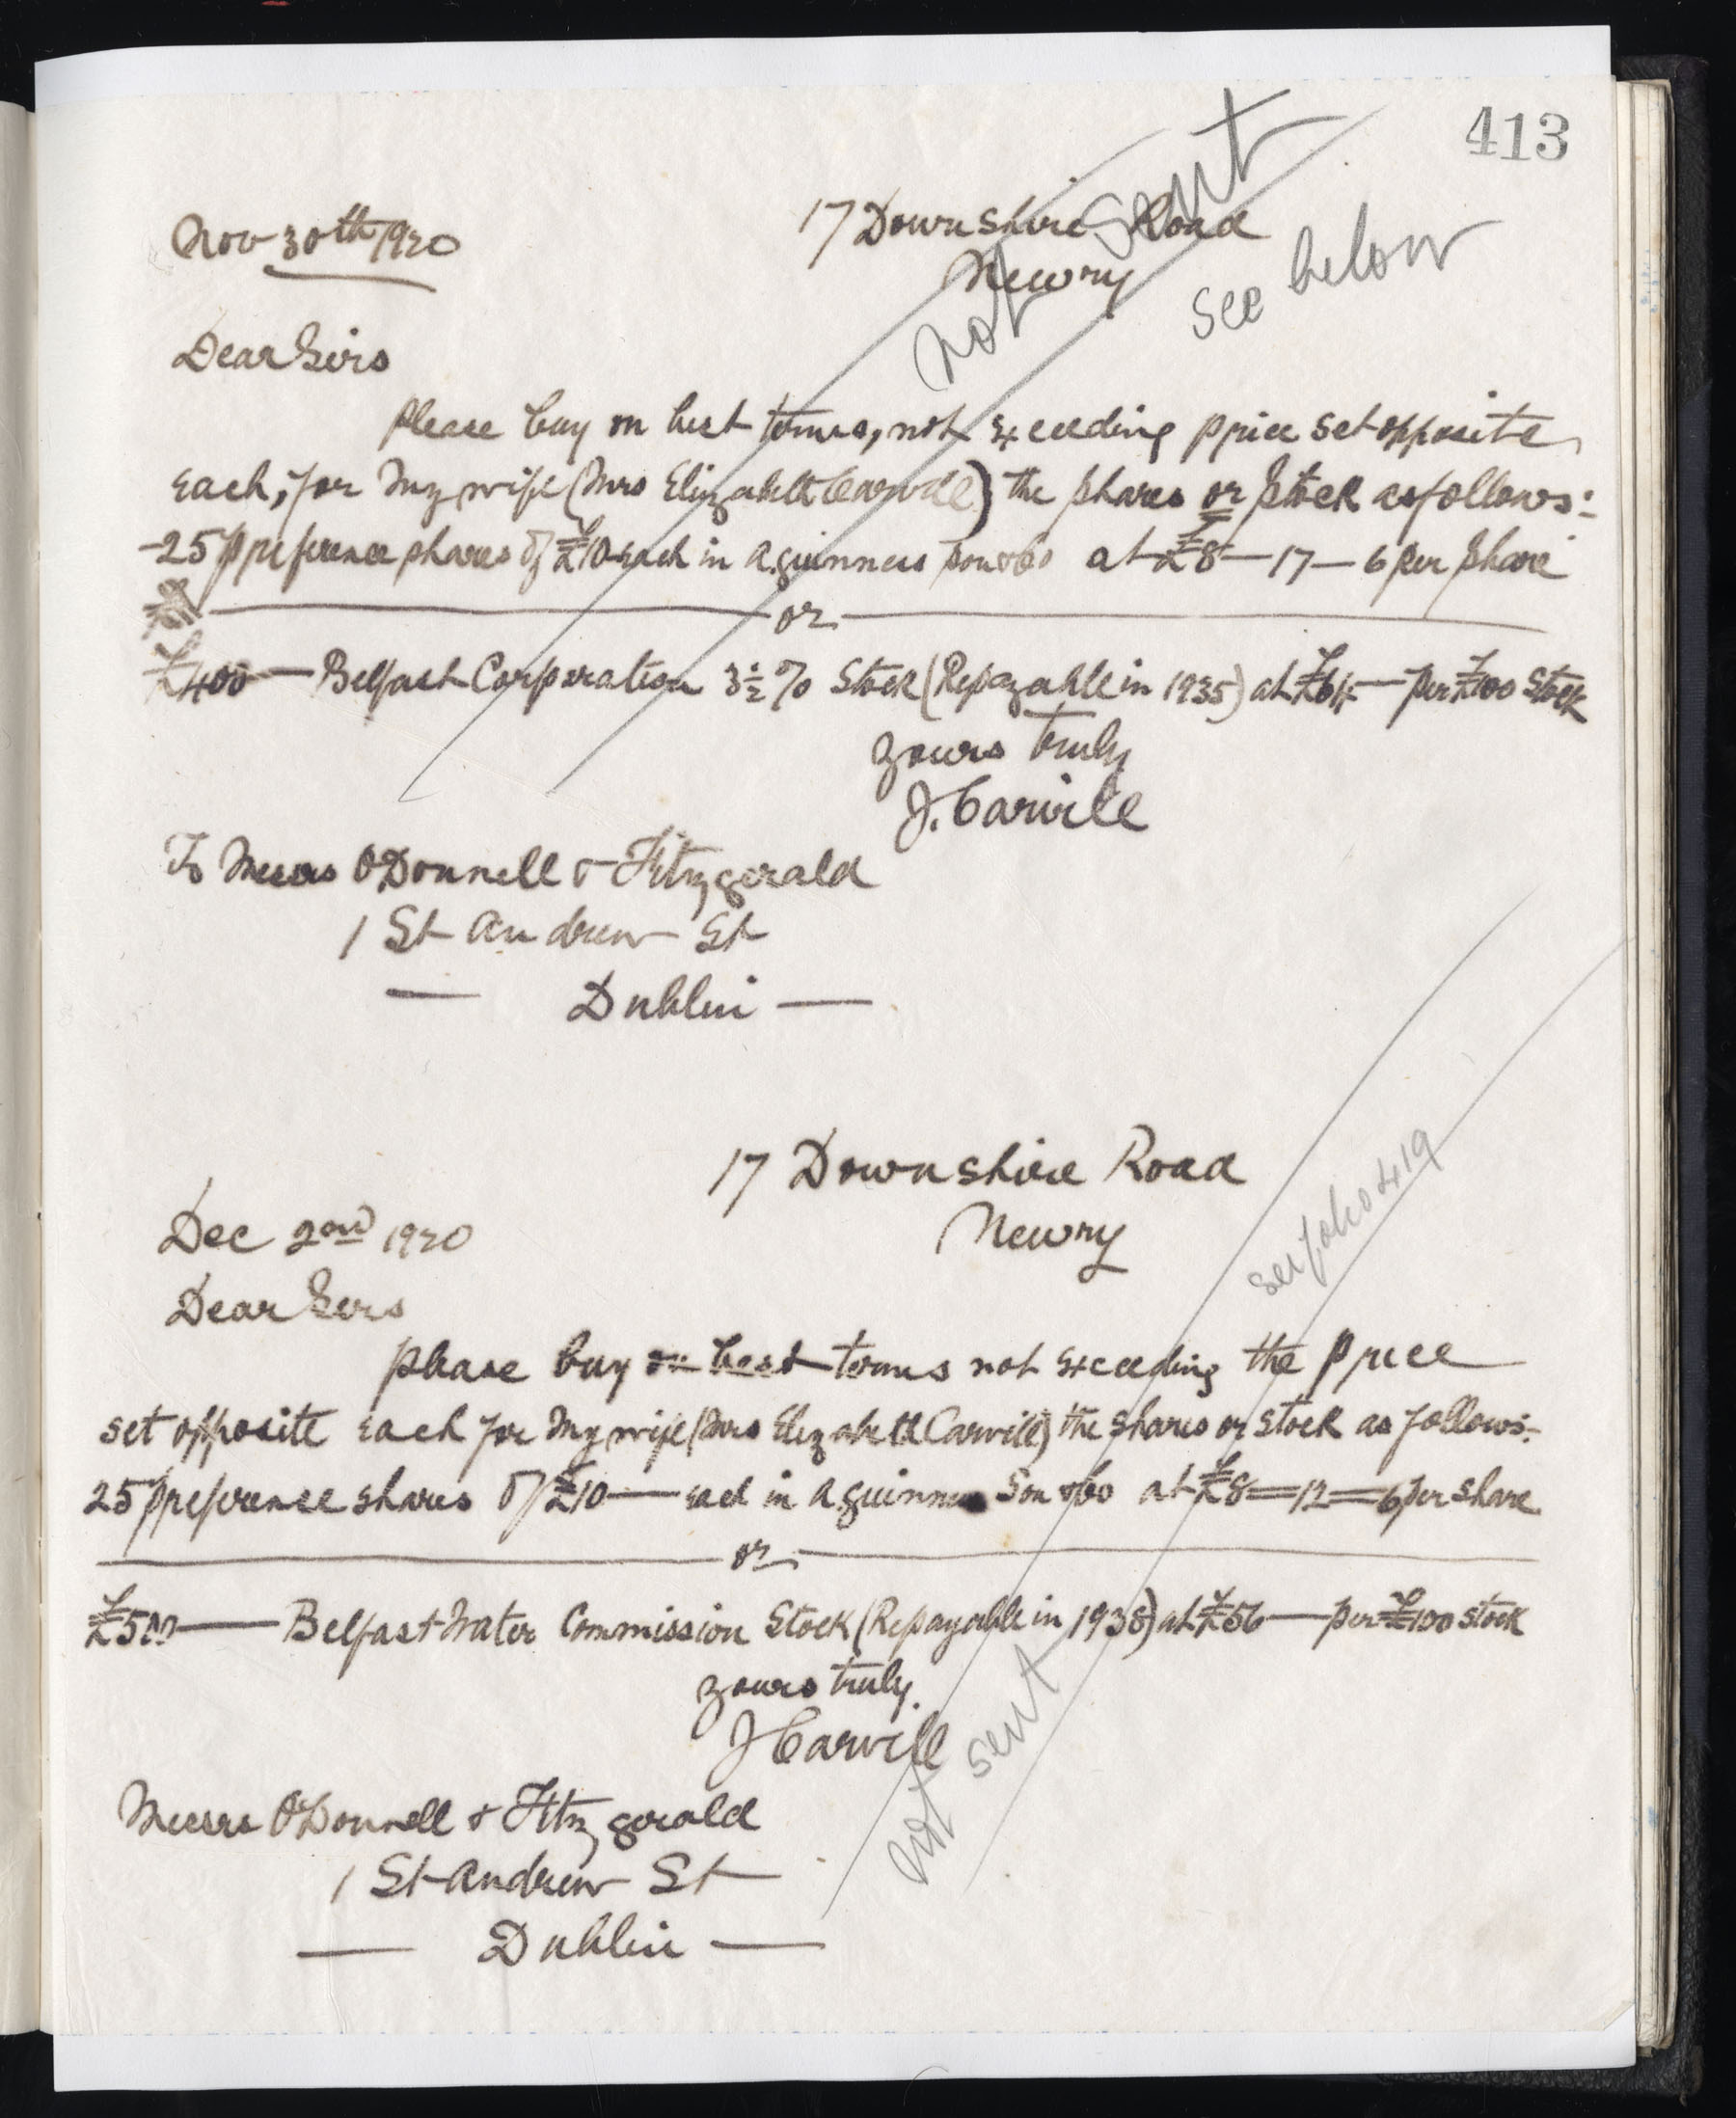 413
not sent
see below
Nov 30th 1920
17 Downshire Road
Newry
Dear Sirs
Please buy on best terms, not exceeding price set opposite
each, for my wife (Mrs Elizabeth Carvill) the shares or stock as follows:-
25 preference shares of £10 each in A. Guinness Son & Co at £8—17—6 per share
or
£400— Belfast Corporation 3½% Stock (Repayable in 1935) at £64— per £100 Stock
yours truly
J. Carvill
To Messrs O'Donnell & Fitzgerald
1 St Andrew St
— Dublin —
17 Downshire Road
Newry
Dec 2nd 1920
see folio 419
Dear Sirs
please buy on best terms not exceeding the price
set opposite each for my wife (Mrs Elizabeth Carvill) the shares or stock as follows:-
25 preference shares of £10— each in A Guinness Son & Co at £8=12=6 per share
or
£500— Belfast Water Commission Stock (Repayable in 1938) at £56— per £100 stock
yours truly
J Carvill
not sent
Messrs O'Donnell & Fitzgerald
1 St Andrew St
— Dublin —